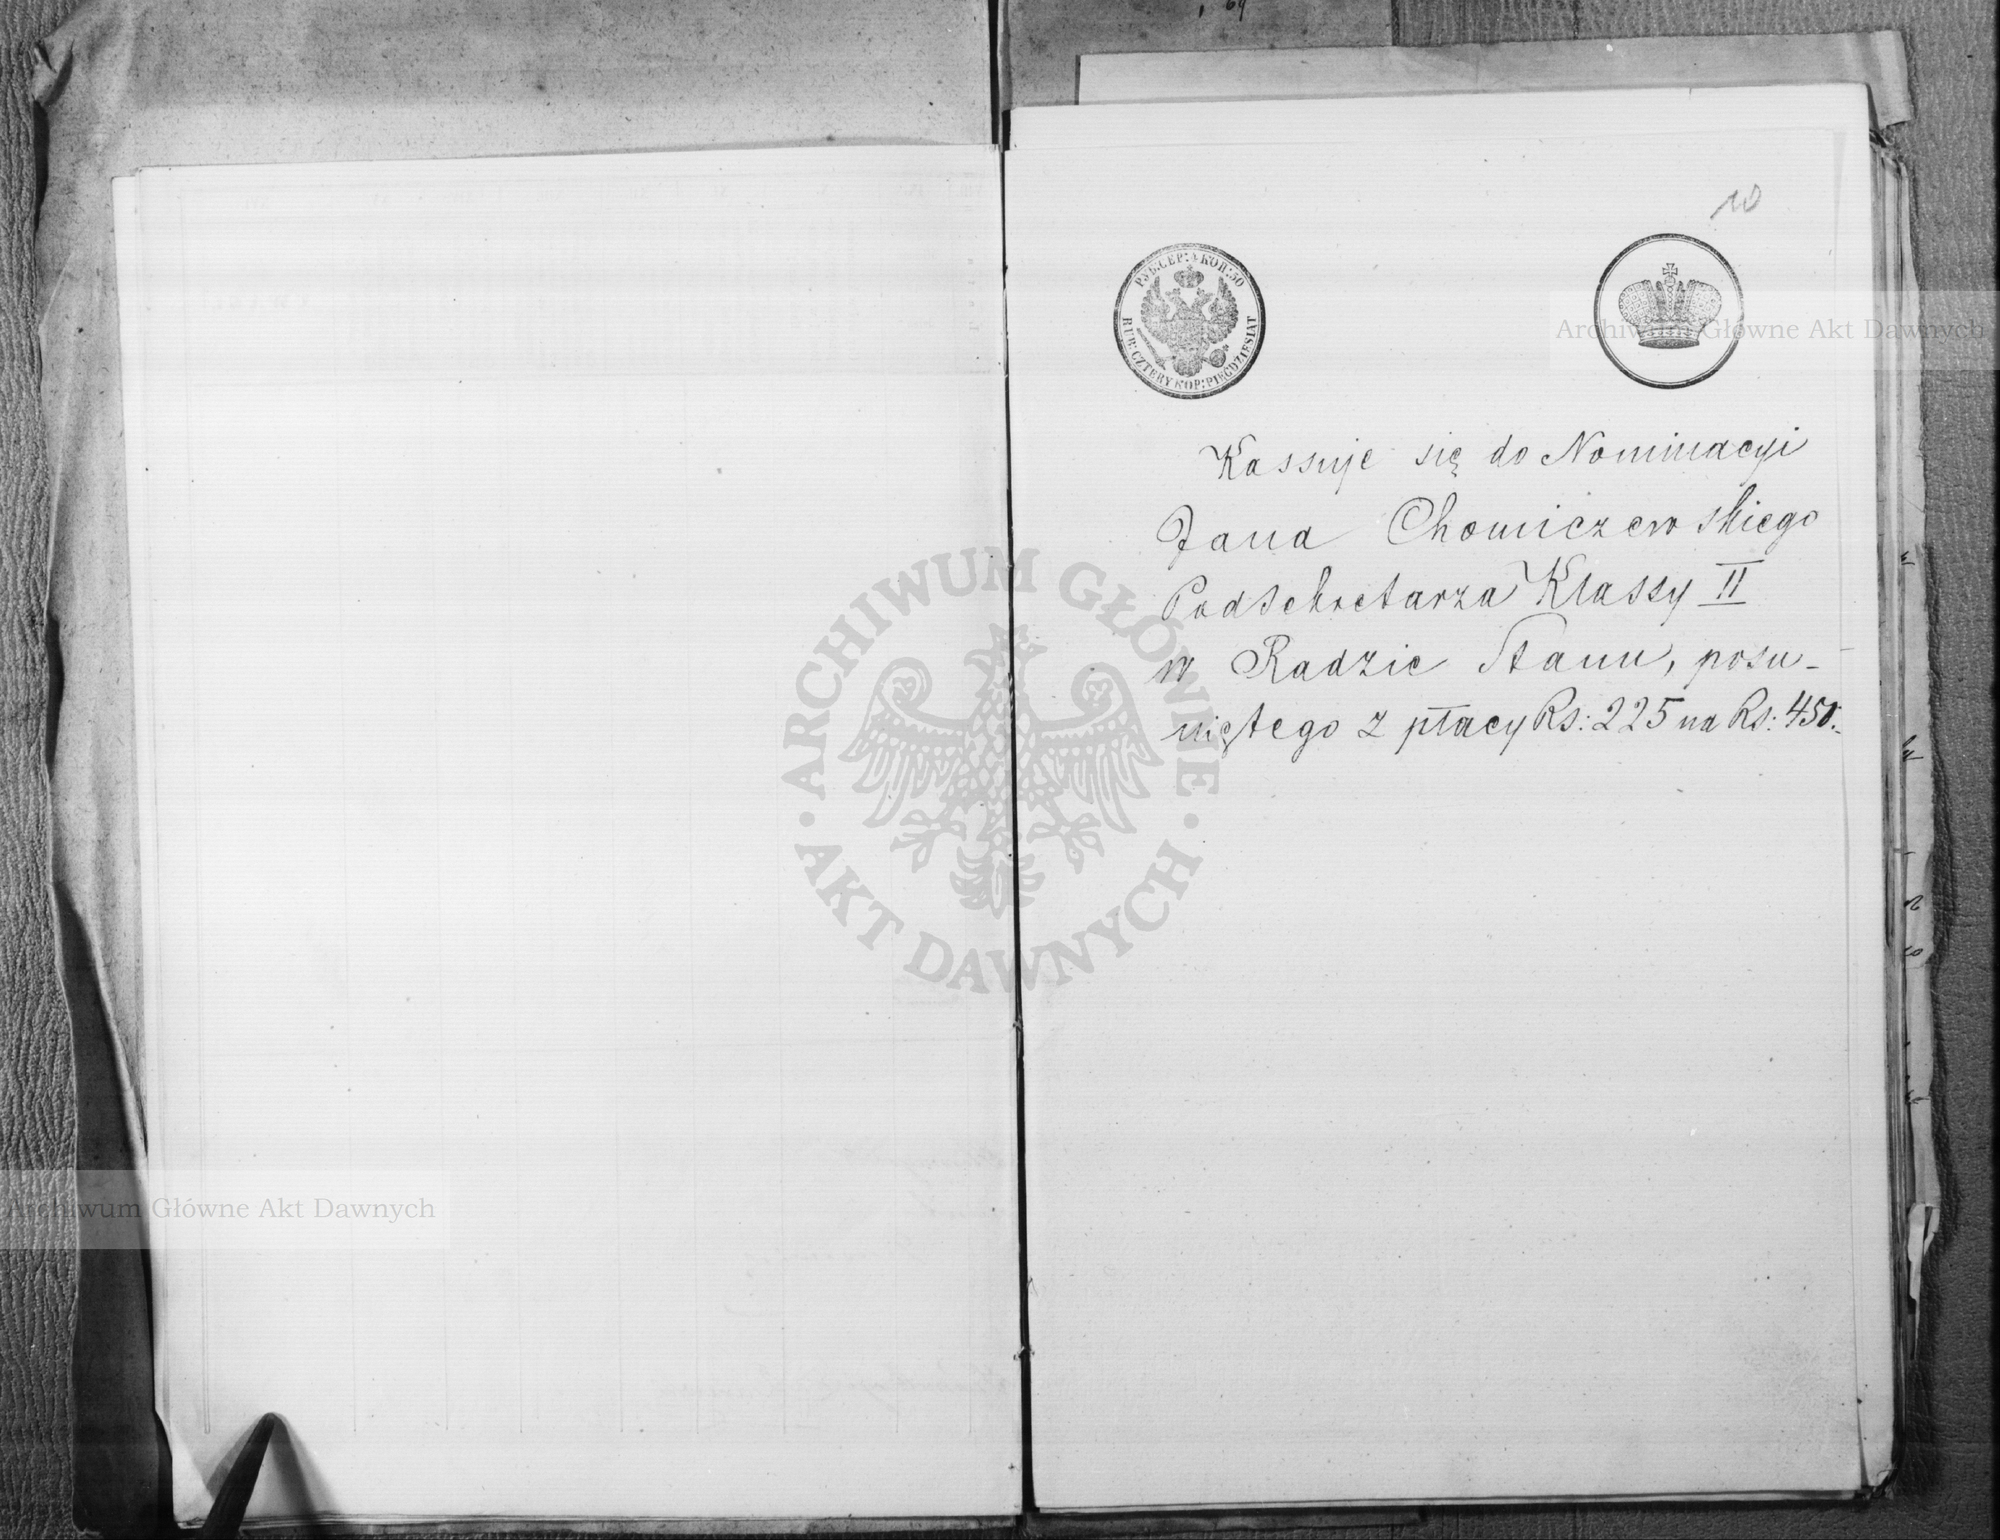 10
РУБ:СЕР:4 КОП:50
RUB: CZTERY KOP: PIĘĆDZIESIĄT
Kassuje się do Nominacyi
Jana Chomiczewskiego
Podsekretarza Klassy II
w Radzie Stanu, posu-
niętego z płacy Rs: 225 na Rs: 450.
Archiwum Główne Akt Dawnych
ARCHIWUM GŁÓWNE
AKT DAWNYCH
Archiwum Główne Akt Dawnych